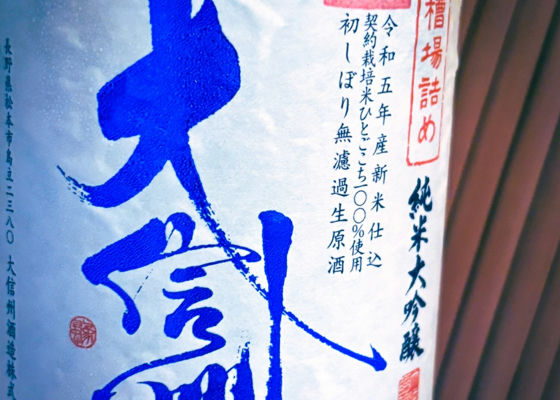 槽場詰め
純米大吟醸
令和五年産新米仕込
契約栽培米ひとごこち一〇〇%使用
初しぼり無濾過生原酒
大信州
長野県松本市島立二三八〇 大信州酒造株式